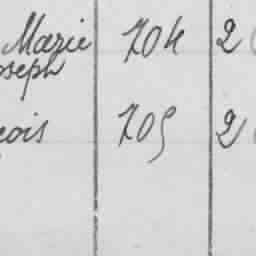 Marie 704 2
oseph
çois 705 2